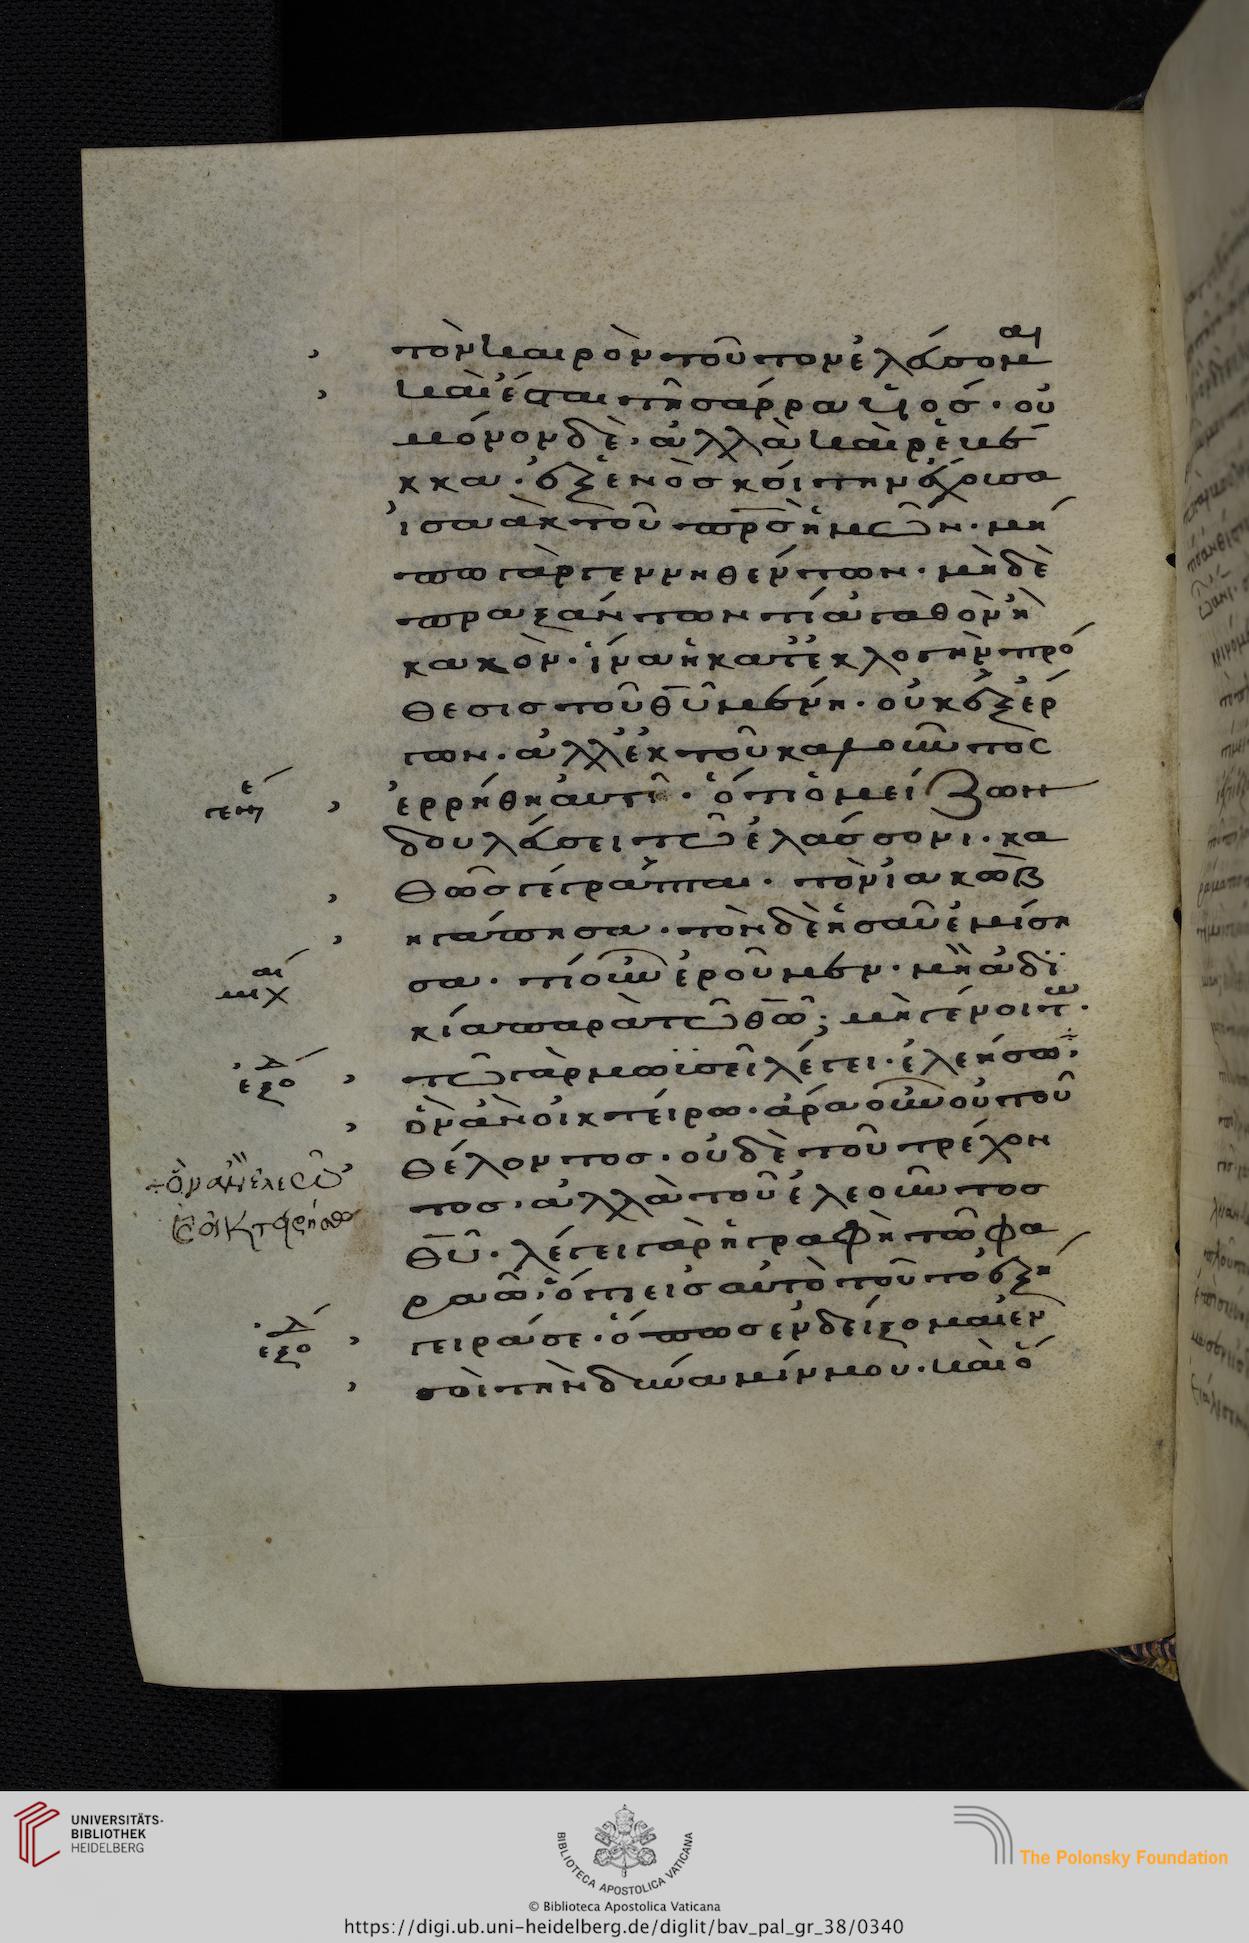 τὸν καιρὸν τοῦτον ἐλεύσομαι
καὶ ἔσται τῆ σάρρα υἱός· οὐ
μόνον δὲ· ἀλλὰ καὶ ῥεβέ
κκα· ἐξ ἑνὸς κοίτην ἔχουσα
ἰσαὰκ τοῦ πρσ ἡμῶν· μή
πω γὰρ γεννηθέντων· μὴδὲ
πραξάντων τί ἀγαθὸν ἢ
κακὸν· ἵνα ἡ κατ' ἐκλογὴν πρό
θεσις τοῦ θυ μένη· οὐκ ἐξ ἔρ
γων· ἀλλ' ἐκ τοῦ καλοῦντος
γενέ
ἐρρήθη αυτῆ· ὅτι ὁ μείζων
δουλεύσει τῶ ἐλάσσονι· κα
θῶς γέγραπται· τὸν ἰακὼβ
ηγάπησα· τὸν δὲ ἡσαῦ ἐμίση
μιχαί
σα· τί οὖν ἐροῦμεν· μὴ ἀδϊ
κία παρὰ τῶ θῶ; μὴ γένοιτω·
ἔξοδ
τῶ γὰρ μωϊσεῖ λέγει· ἐλεήσω
ὃν ἂν οἰκτείρω· ἄρα οὖν οὐ τοῦ
ὃν ἂν ἐλεῶ
θέλοντος· οὐδὲ τοῦ τρέχον
τος· ἀλλὰ τοῦ ἐλεοῦντος
θυ· λέγει γὰρ ἡ γραφὴ τῶ φα
ραῶ· ὅτι εἰς αὐτὸ τοῦτο ἐξή
ἔξοδ
γειρά σε· ὅπως ἐνδείξομαι ἐν
σοὶ τὴν δύναμίν μου· καὶ ὅ
UNIVERSITÄTS-
BIBLIOTHEK
HEIDELBERG
BIBLIOTECA APOSTOLICA VATICANA
The Polonsky Foundation
© Biblioteca Apostolica Vaticana
https://digi.ub.uni-heidelberg.de/diglit/bav_pal_gr_38/0340